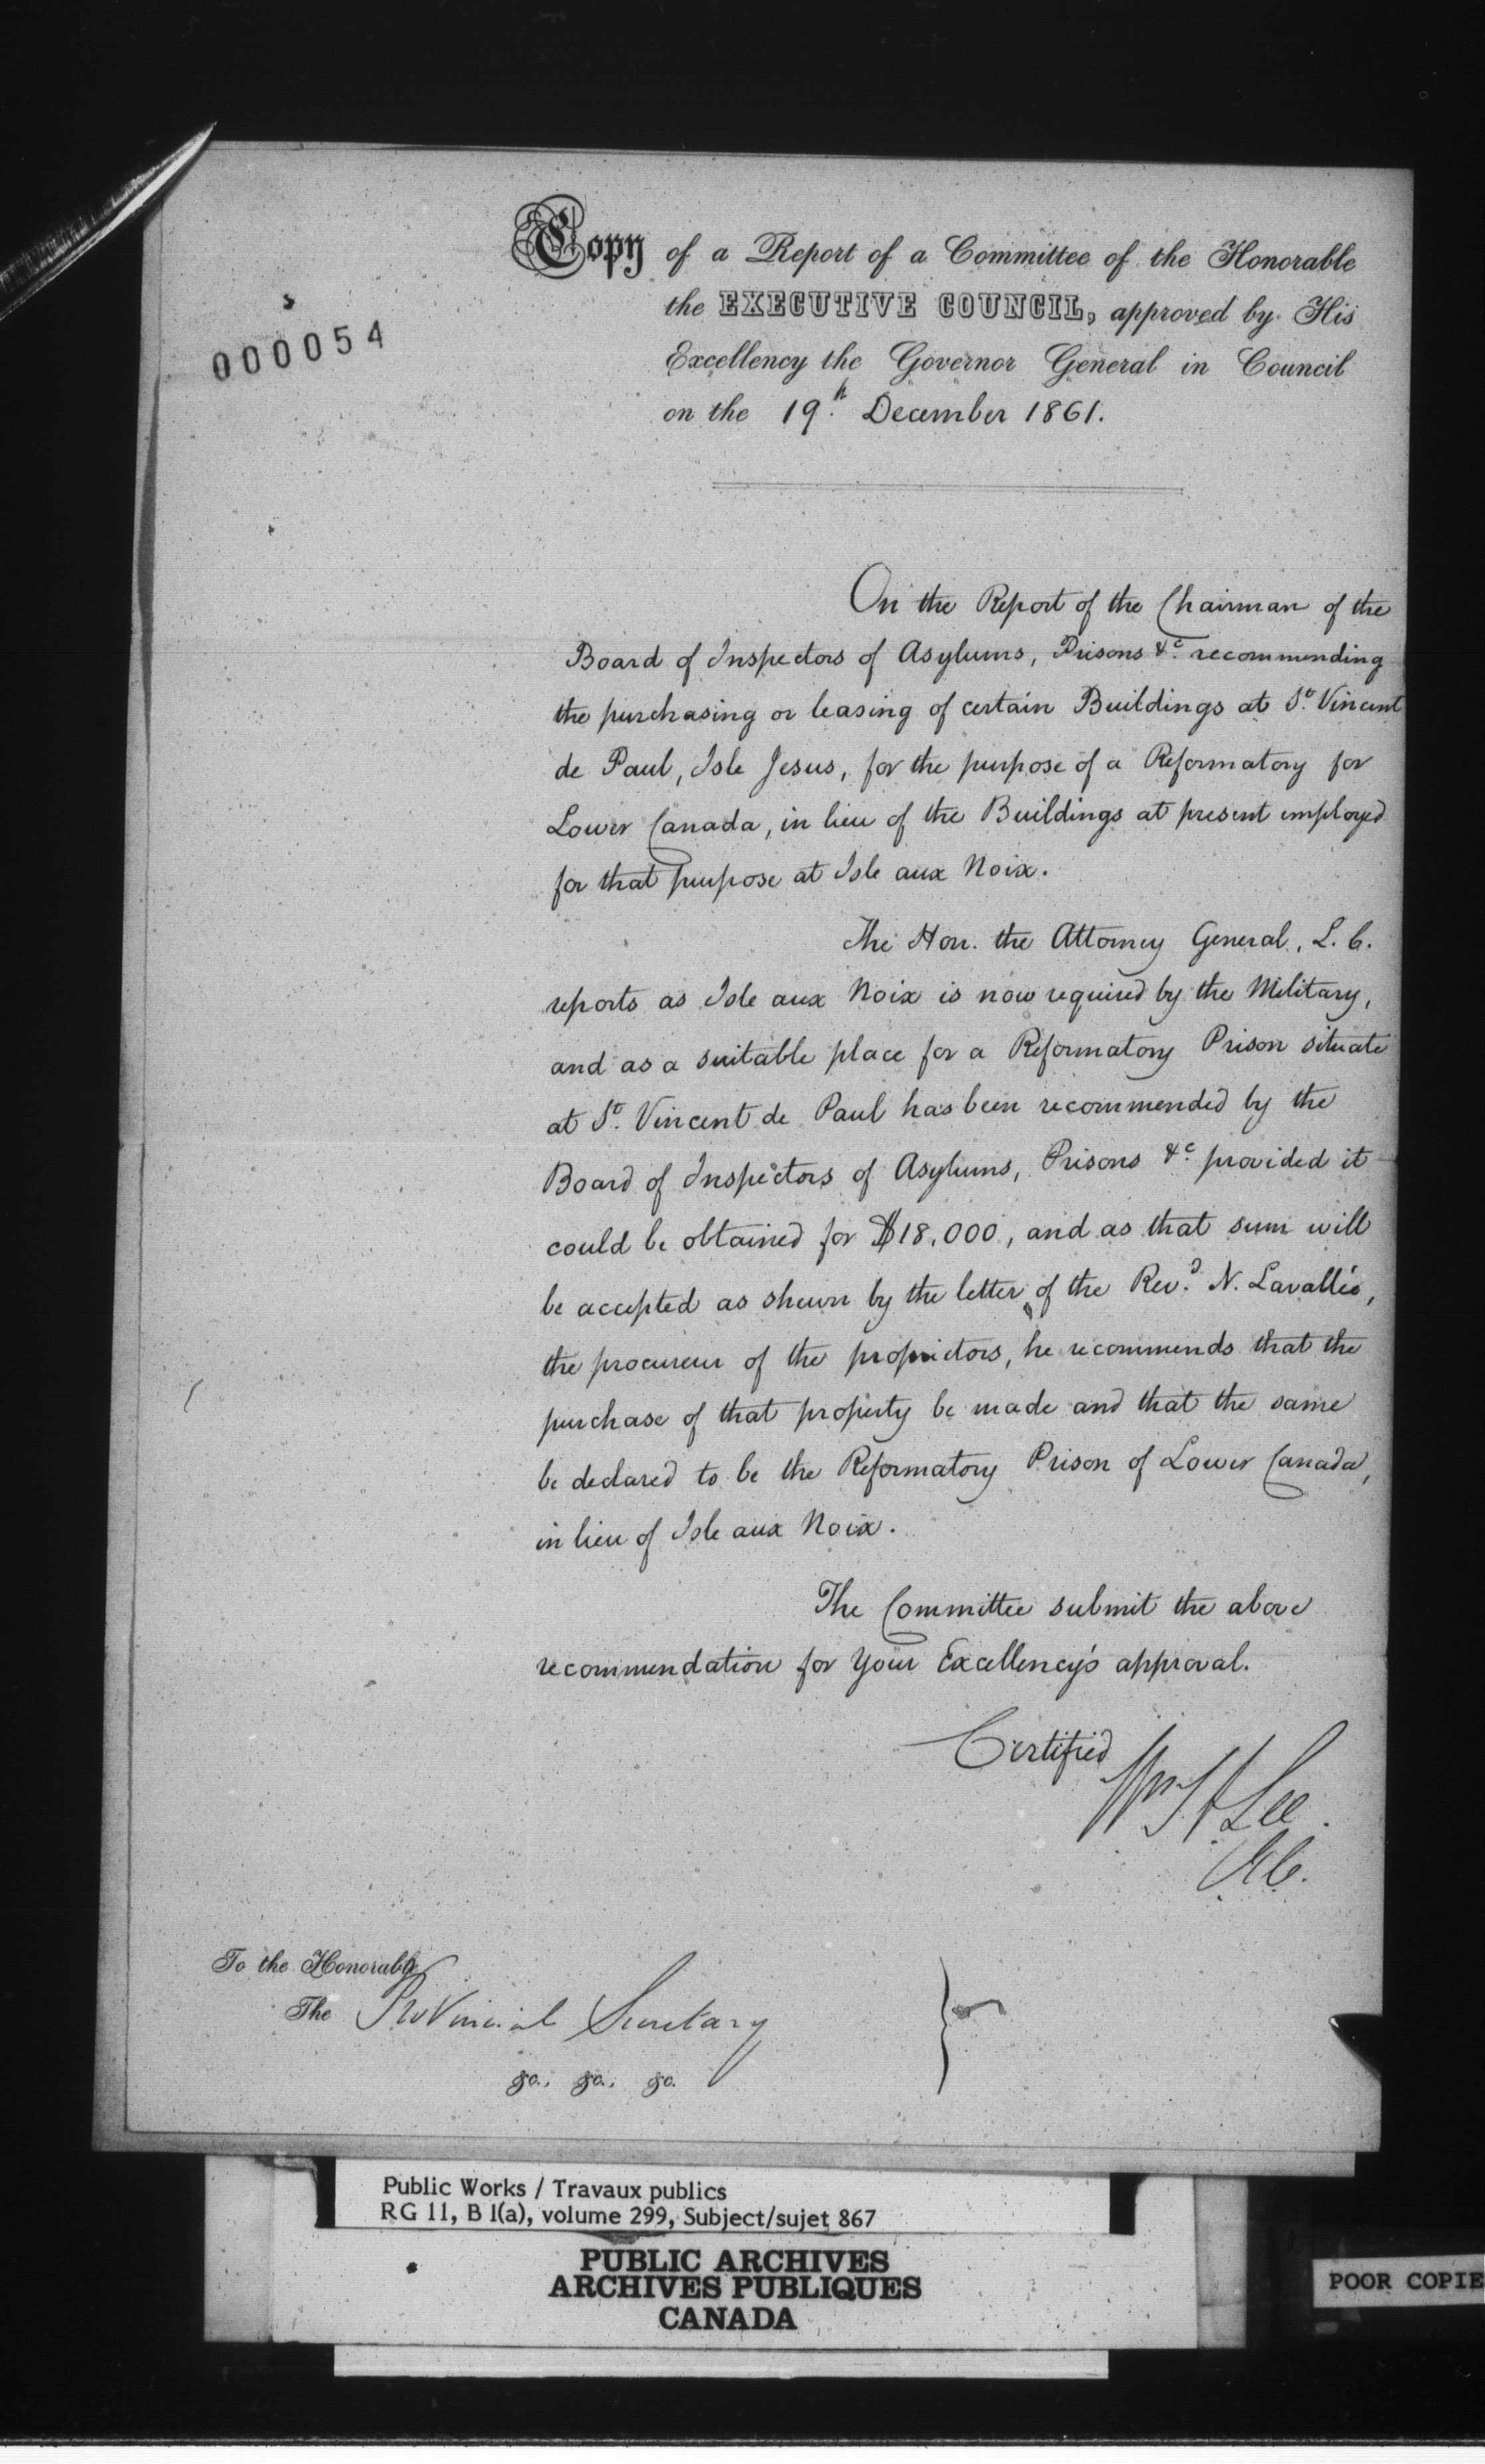 Copy of a Report of a Committee of the Honorable
the EXECUTIVE COUNCIL, approved by His
Excellency the Governor General in Council
on the 19th December 1861.
000054
On the Report of the Chairman of the
Board of Inspectors of Asylums, Prisons &c. recommending
the purchasing or leasing of certain Buildings at St. Vincent
de Paul, Isle Jesus, for the purpose of a Reformatory for
Lower Canada, in lieu of the Buildings at present employed
for that purpose at Isle aux Noix.
The Hon. the Attorney General, L. C.
reports as Isle aux Noix is now required by the Military,
and as a suitable place for a Reformatory Prison situate
at St. Vincent de Paul has been recommended by the
Board of Inspectors of Asylums, Prisons &c. provided it
could be obtained for $18,000, and as that sum will
be accepted as shewn by the letter of the Revd. N. Lavallée,
the procureur of the proprietors, he recommends that the
purchase of that property be made and that the same
be declared to be the Reformatory Prison of Lower Canada,
in lieu of Isle aux Noix.
The Committee submit the above
recommendation for Your Excellency's approval.
Certified
Wm H Lee.
To the Honorable
The Provincial Secretary
&c., &c., &c.
Public Works / Travaux publics
RG 11, B 1(a), volume 299, Subject/sujet 867
PUBLIC ARCHIVES
ARCHIVES PUBLIQUES
CANADA
POOR COPIE